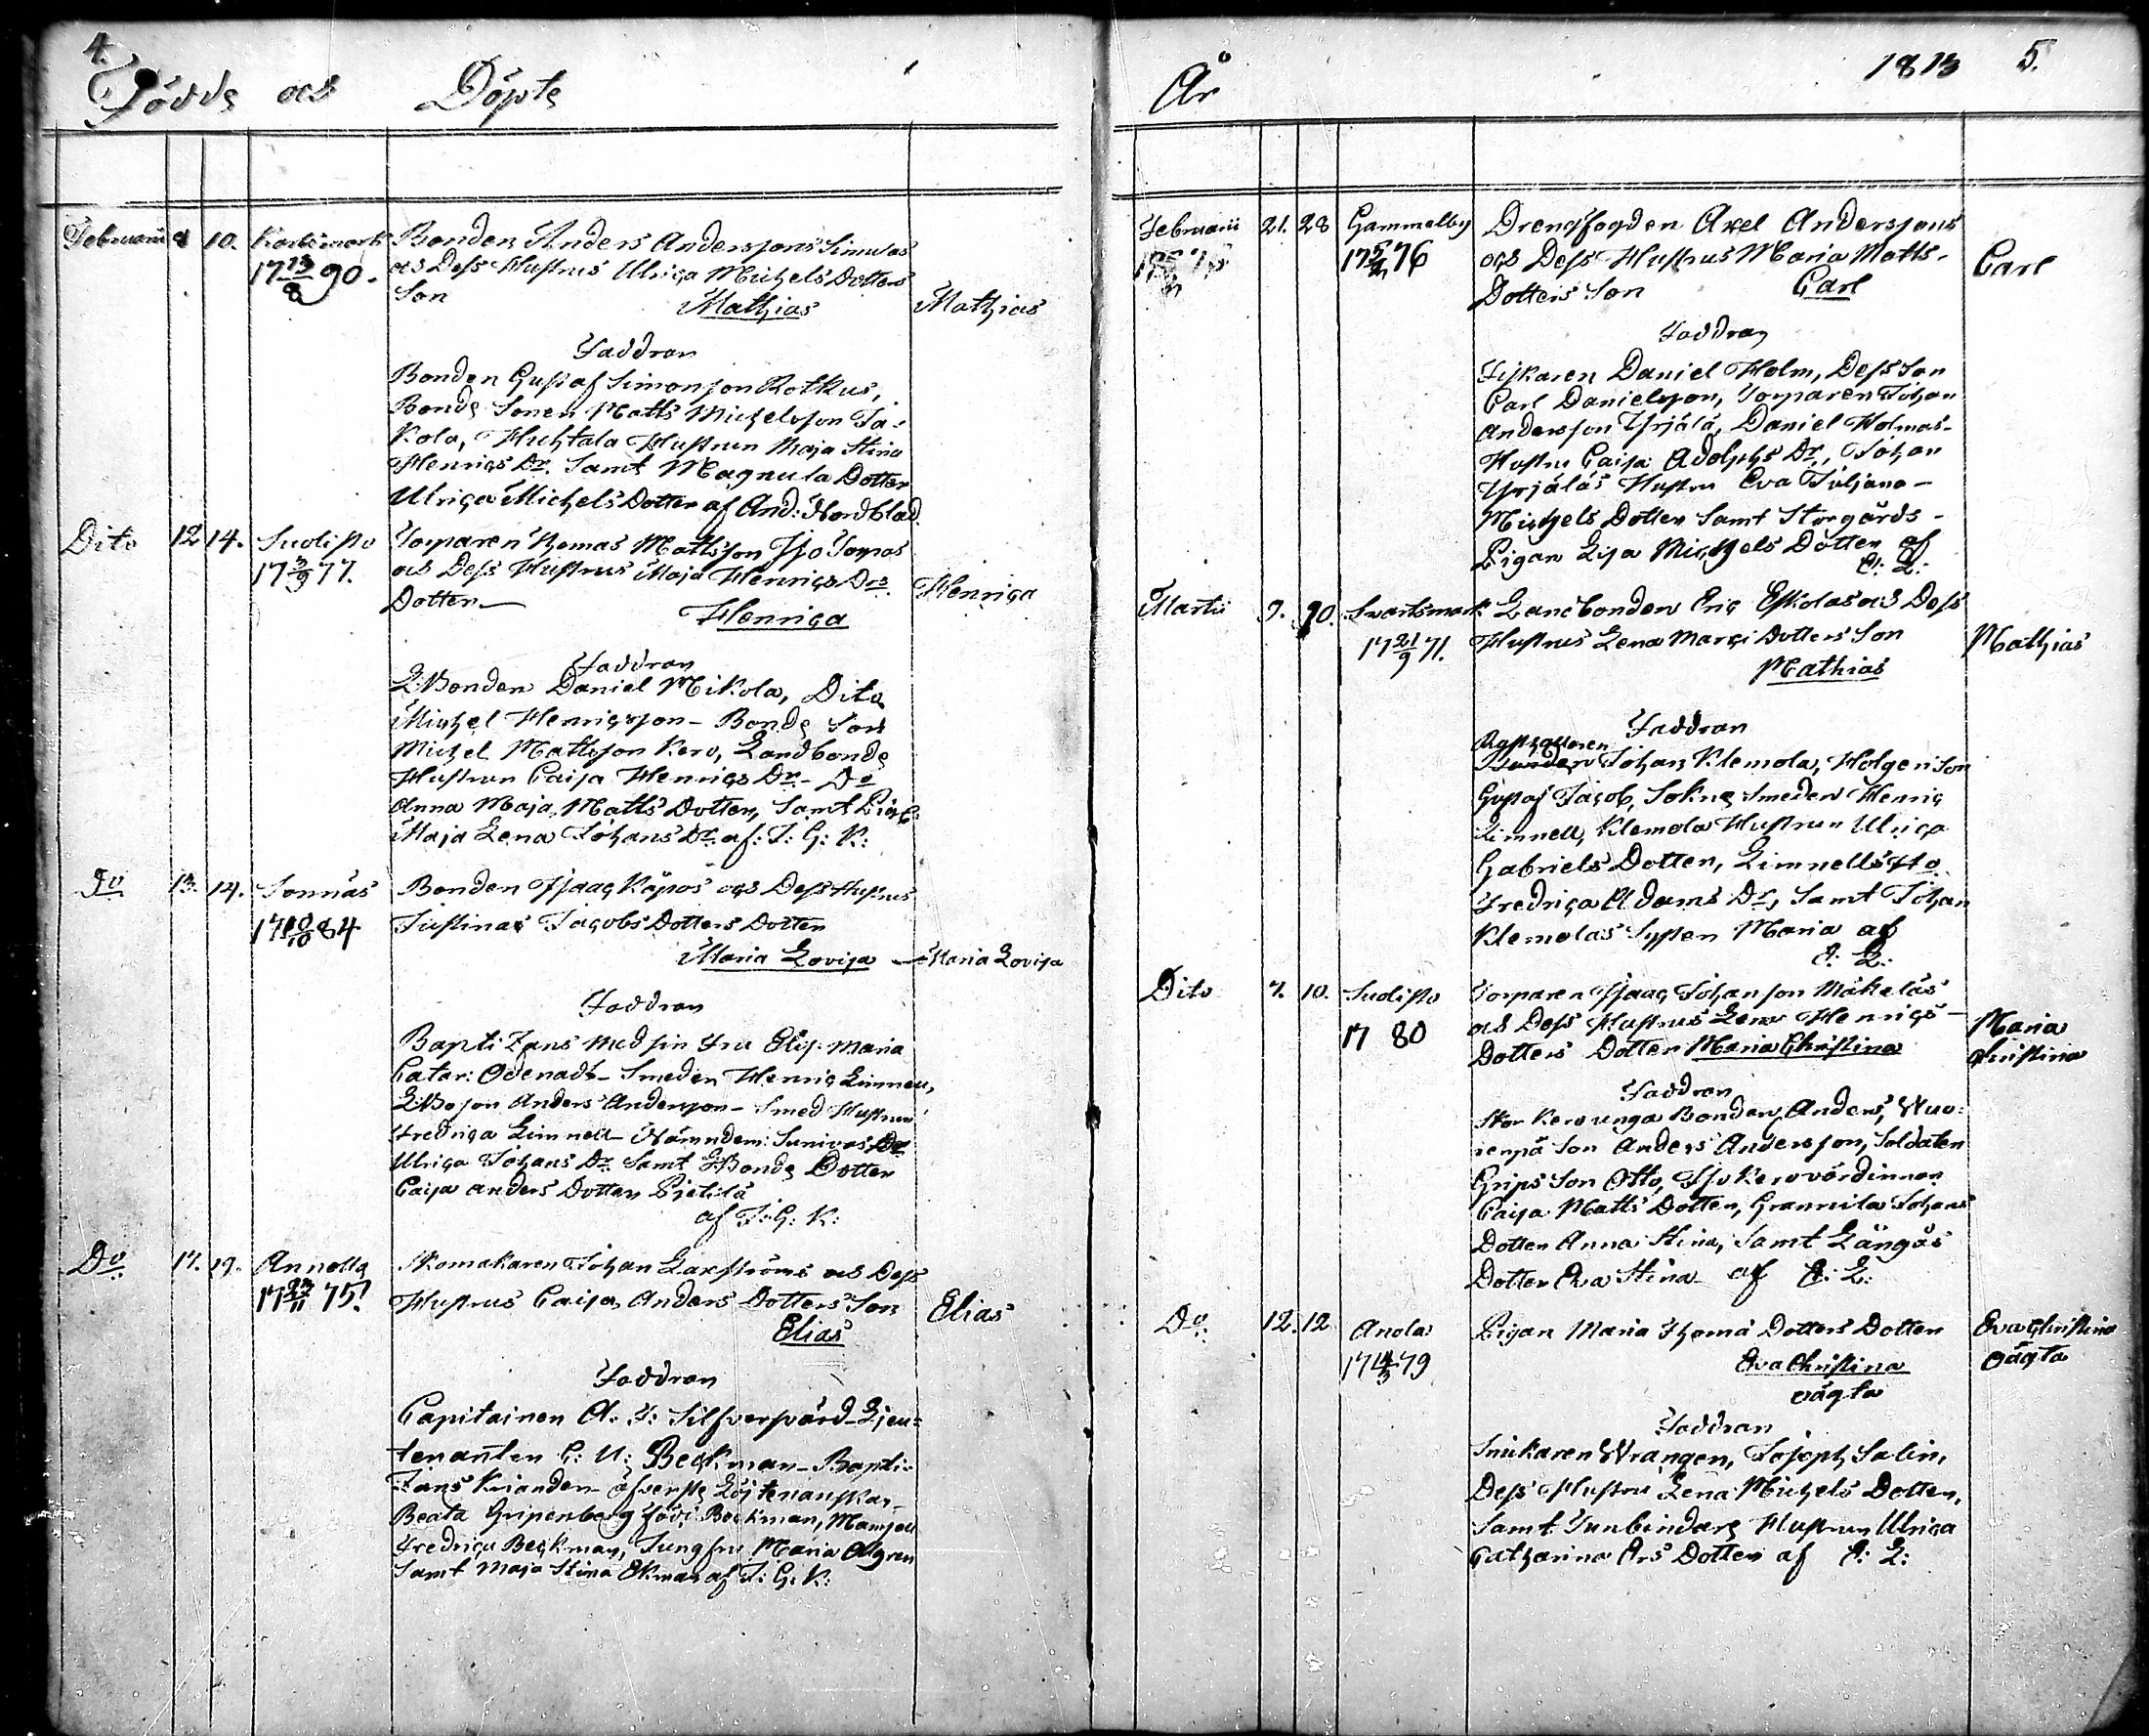 4.
Födde och Döpte
Februarii 9 10. Karlsmark Bonden Anders Anderssons Simulas
17 13/8 90. och Dess Hustrus Ulrica Michels Dotters
Son Mathias Mathias
Faddran
Bonden Gustaf Simonsson Rotkus,
Bonde Sonen Matts Michelsson Ja-
Kola, Huhtala Hustrun Maja Stina
Henrics Dr. Samt Magnula Dotter
Ulrica Michels Dotter af And: Nordblad
Dito 12 14. Suolisto Torparen Thomas Mattsson Iso Torpas
17 3/9 77. och Dess Hustrus Maja Henrics Drs.
Dotter Henrica
Henrica
Faddran
L:Bonden Daniel Mikola, Dito
Michel Henricsson - Bonde Son
Michel Mattsson Kero, Landbonde
Hustrun Caisa Henrics Dr. Do
Anna Maja Matts Dotter, Samt Pig:
Maja Lena Johans Dr. af: J: G: K:
Do 13. 14. Sonnäs Bonden Isaac Käpos och Dess Hustrus
17 10/10 84 Justinas Jacobs Dotters Dotter
Maria Lovisa Maria Lovisa
Faddran
Bapti Zans med sin Fru Elis. Maria
Catar: Odenadt - Smeden Henric Limnell,
L:Bo son Anders Andersson - Smed Hustrun
Fredrica Limnell - Nämndem: Sunivas Dr
Ulrica Johans Dr. Samt L:Bonde Dotter
Caisa Anders Dotter Pietilä
af J: G: K:
Do 17. 19. Annolla Skomakaren Johan Laxströms och Dess
17 23/11 75. Hustrus Caisa Anders Dotters Son Elias
Elias
Faddran
Capitainen A. F: Silfversvärd - Ljeu-
tenanten C: U: Beckman - Bapti-
Zans Krianden - öfverste Löjtenanskan
Beata Gripenberg född Beckman, Mamsell
Fredrica Beckman, Jungfru Maria Algren
Samt Maja Stina Ekman af J: G: K:
År 1813 5.
Februarii 21. 28 Gammelby Drengfogden Axel Anderssons
17 5/2 76 och Dess Hustrus Maria Matts- Carl
Dotters Son Carl
Faddran
Fiskaren Daniel Holm, Dess Son
Carl Danielsson, Torparen Johan
Andersson Yrjälä, Daniel Holmas-
Hustru Caisa Adolphs Dr., Johan
Yrjäläs Hustru Eva Juljana -
Michels Dotter Samt Storgårds -
Pigan Lisa Michels Dotter af
A: L:
Martii 9. 10. Svartsmark Landbonden Eric Eskolas och Dess
17 21/9 71. Hustrus Lena Marci Dotters Son Mathias
Mathias
Faddran
Rusthållaren
Bonden Johan Klemola, Holgeri Son
Gustaf Jacob, Sokne Smeden Henric
Limnell, Klemola Hustrun Ulrica
Gabriels Dotter, Limnells Ho
Fredrica Adams Dr., Samt Johan
Klemolas Syster Maria af
A: L:
Dito 7. 10. Suolisto Torparen Isaac Johansson Mäkeläs
17 80 och Dess Hustrus Lena Henrics - Maria
Dotters Dotter Maria Christina Christina
Faddran
Stor Kero unga Bonden Anders, Wuo-
renpä Son Anders Andersson, Soldaten
Grips Son Otto, Iso Kero värdinnan
Caisa Matts Dotter, Grannila Johans
Dotter Anna Stina, Samt Långås
Dotter Eva Stina af A: L:
Do 12. 12 Anola Pigan Maria Thomä Dotters Dotter Eva Christina
17 14/3 79 Eva Christina oägta
oägta
Faddran
Snickaren Wrangen, Joseph Salin,
Dess Hustru Lena Michels Dotter,
Samt Tunbindare Hustrun Ulrica
Catharina Ers Dotter af A: L: